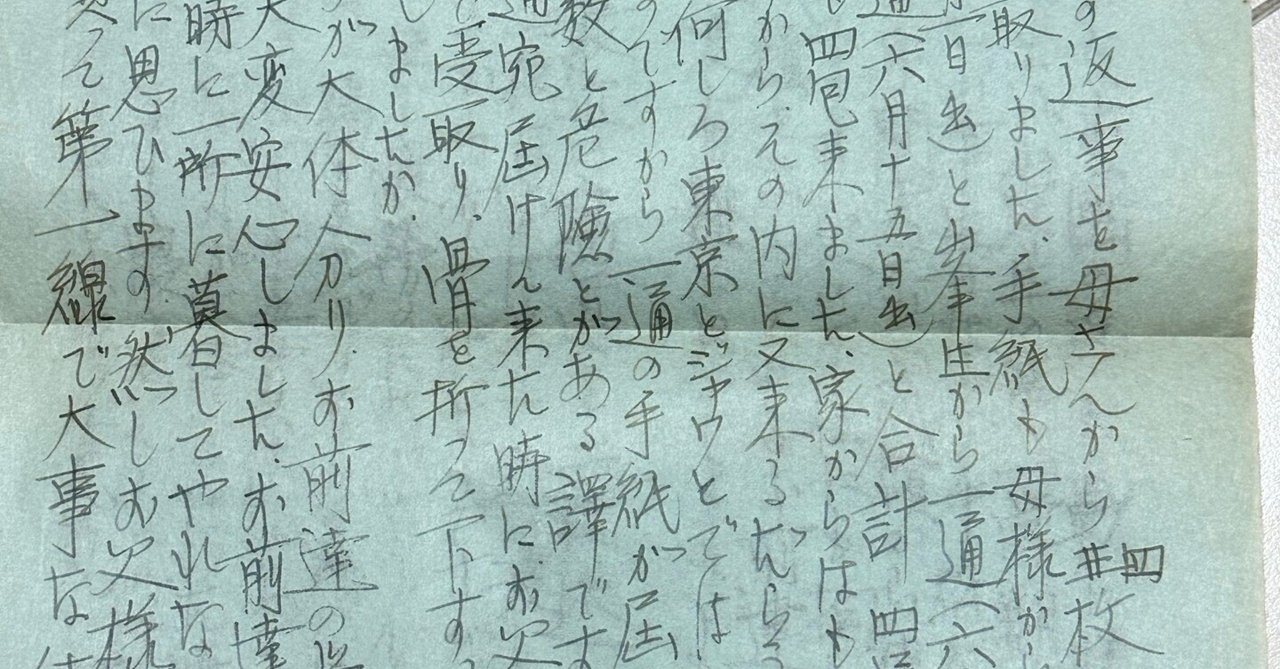 の返事を母さんから 枚
取りました、手紙も母様か
一日出)と 生から一通(六
通(六月十五日出)と合計 四
四包来ました、家からはも
から、その内に又来るだらう
何しろ東京とジャワとでは
のですから一通の手紙が届
数と危険とがある譯です
通宛届け 来た時にお父
受取り、骨を折って下す
しましたが、
が大体分り、お前達の
大変安心しました、お前達
時に一所に暮してやれな
に思ひます。然しお父様
って第一線で大事な